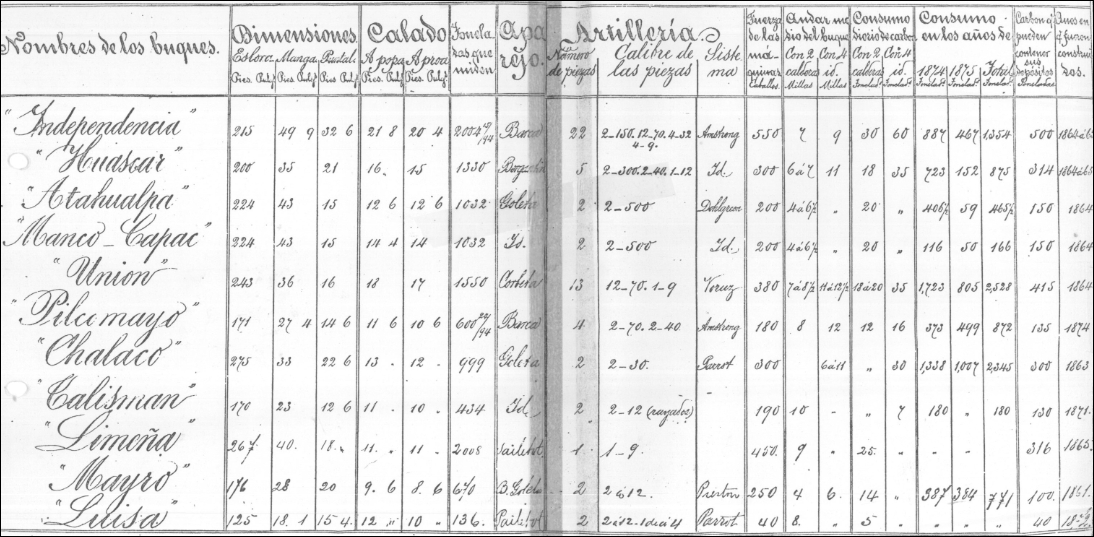 Nombres de los buques. Dimensiones Calado Tonela das que miden Apa rejo. Artillería. Fuerza de las má quinas Caballos. Andar me dio del buque Consumo diario de carbon Consumo en los años de Carbon q. pueden contener sus depósitos Toneladas Años en q. fueron construi dos.
Eslora. Manga. Puntal. A popa A proa Número de piezas Calibre de las piezas Siste ma Con 2 calderas Con 4 id. Con 2 calderas Con 4 id. 1874 1875 Total
Pies. Pulg. Pies Pulg. Pies Pulg. Pies. Pulg. Pies. Pulg. Millas Millas Tonelad.s Tonelad.s Tonelad.s Tonelad.s Tonelad.s
"Independencia" 215 49 9 32 6 21 8 20 4 Barca 22 2-150. 12-70. 4-32 4-9. Amstrong 550 7 9 30 60 887 467 1354 500
"Huascar" 200 35 21 16 15 1330 5 2-300. 2-40. 1-12 Id. 300 6 á 7 11 18 35 723 152 875 314
"Atahualpa" 224 43 15 12 6 12 6 1032 Goleta 2 2-500 200 20 " 59 150 1864
"Manco-Capac" 224 43 15 14 4 14 1032 Id. 2 2-500 Id. 200 20 " 116 50 166 150 1864
"Union" 243 36 16 18 17 1550 Corbeta 13 12-70. 1-9 Voruz 380 18 á 20 35 1,723 805 2,528 415 1864
"Pilcomayo" 171 27 4 14 6 11 6 10 6 Barca 4 2-70. 2-40 Amstrong 180 8 12 12 16 373 499 872 135 1874
"Chalaco" 275 33 22 6 13 . 12 . 999 Goleta 2 2-30. Parrot 300 6 á 11 " 30 1,338 1,007 2,345 300 1863
"Talisman" 170 23 12 6 11 . 10 . 434 Id. 2 2-12 (rayados) 190 10 - " 7 180 " 180 130 1871.
"Limeña" 267 40. 18. " 11. " 11 " 2008 Pailebot 1 1-9. 450. 9 " 25. " " " " 316 1865.
"Mayro" 176 28 20 9. 6 8. 6 670 B. Goleta 2 2 á 12. Preston 250 4 6. 14 " 387 384 771 100. 1861.
"Luisa" 125 18. 1 15 4. 12 " 10 " 136. Pailebot 2 Parrot 40 8. " 5 " " " " 40